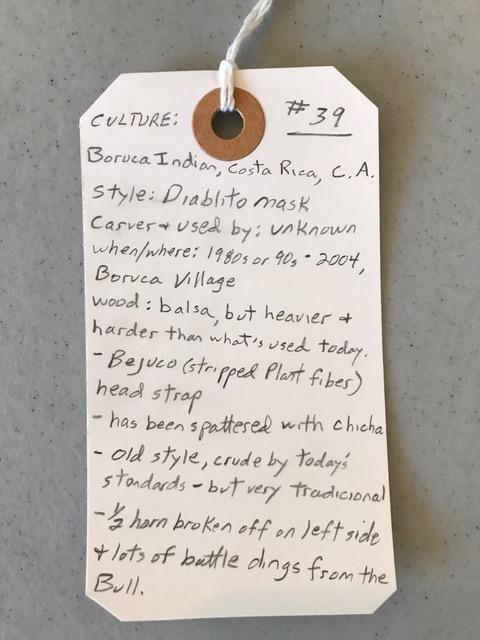 CULTURE: #39
Boruca Indian, Costa Rica, C.A.
Style: Diablito mask
Carver & used by: unknown
when/where: 1980s or 90s - 2004,
Boruca Village
wood: balsa, but heavier &
harder than what's used today.
- Bejuco (stripped Plant fiber)
head strap
- has been spattered with chicha
- Old style, crude by today's
standards - but very tradicional
- 1/2 horn broken off on left side
& lots of battle dings from the
Bull.